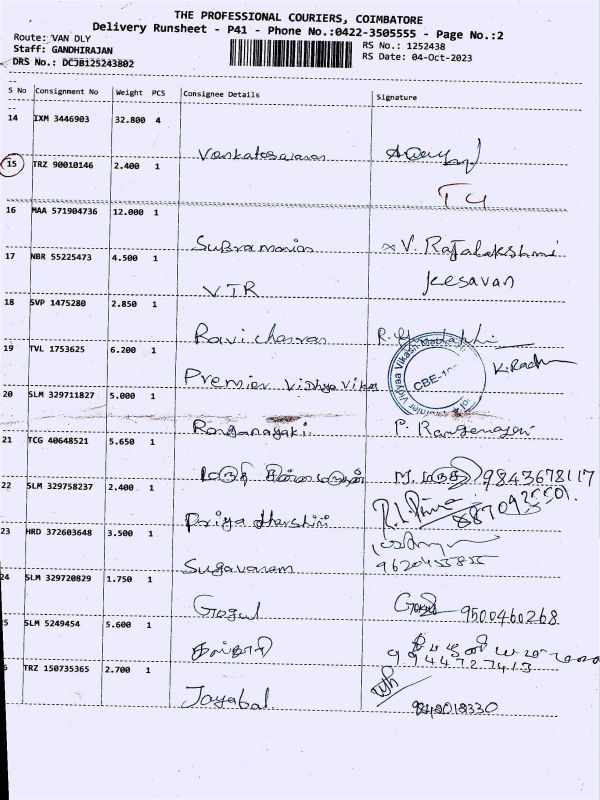 THE PROFESSIONAL COURIERS, COIMBATORE
Delivery Runsheet - P41 - Phone No.:0422-3505555 - Page No.:2
Route: VAN DLY
RS No.: 1252438
Staff: GANDHIRAJAN
RS Date: 04-Oct-2023
DRS No.: DCJB125243802
S No Consignment No Weight PCS Consignee Details Signature
14 IXM 3446903 32.800 4
Vankatesaian
15 TRZ 90010146 2.400 1
16 MAA 571904736 12.000 1
Subramanian V. Rajalakshmi
17 NBR 55225473 4.500 1
VTR Kesavan
18 SVP 1475280 2.850 1
Ravi chandran
19 TVL 1753625 6.200 1
Premier Vidhya Vikas K. Radha
CBE-10
20 SLM 329711827 5.000 1
Ranganayaki P. Ranganayaki
21 TCG 40648521 5.650 1
மருதி M. மருதி 9843678117
22 SLM 329758237 2.400 1
Priya dharshini
23 HRD 372603648 3.500 1
Sugavanam 9620455855
24 SLM 329720829 1.750 1
Gogul 9500460268
5 SLM 5249454 5.600 1
9944727413
6 TRZ 150735365 2.700 1
Jayabal